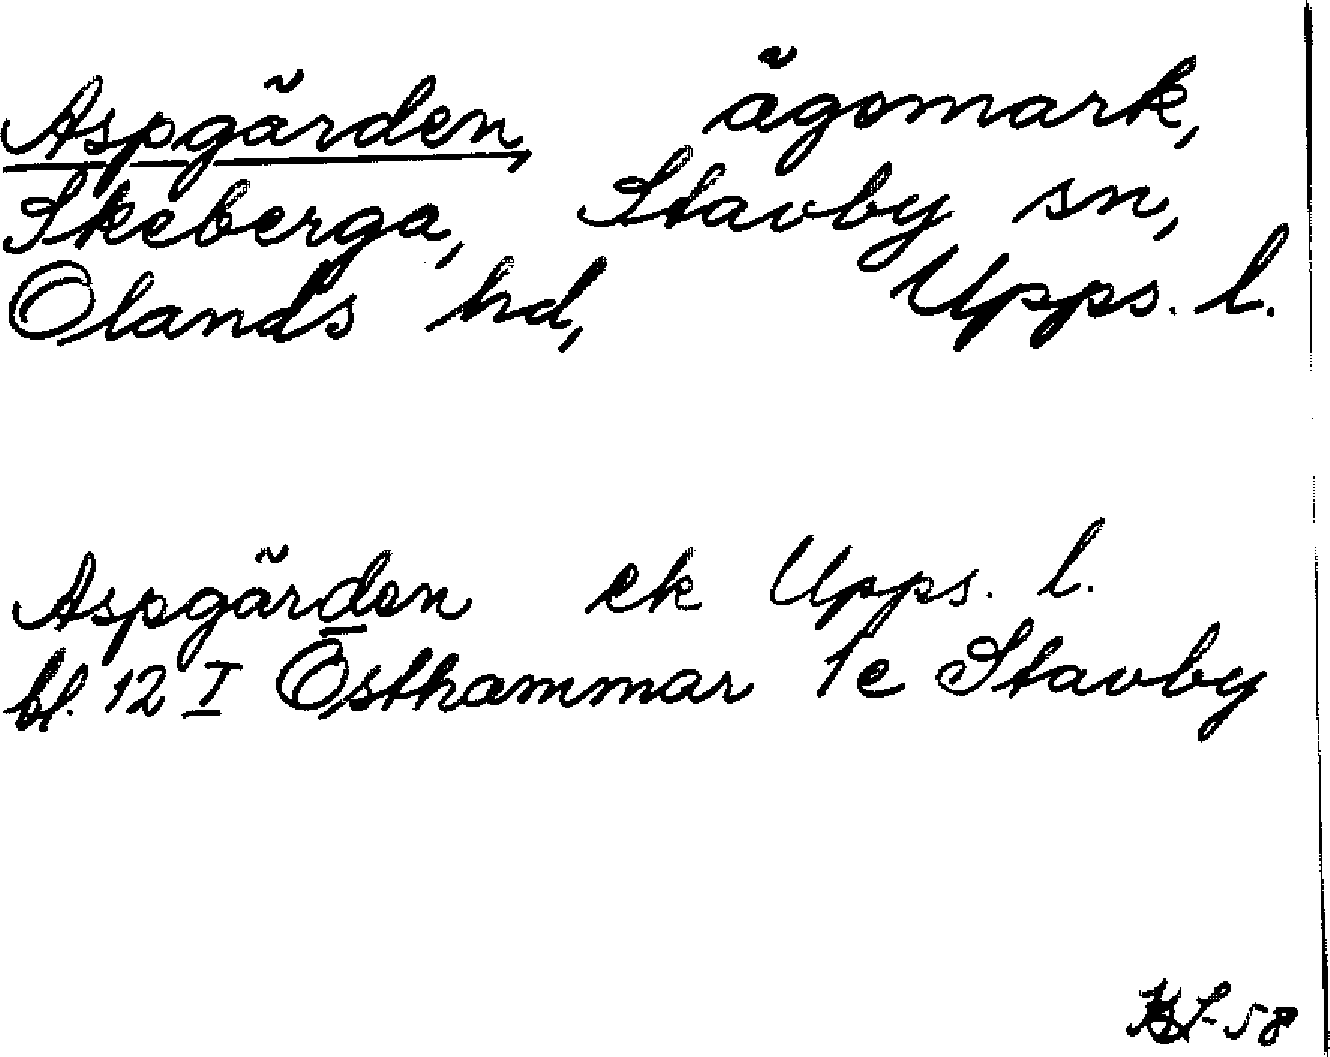 Aspgärden, ägomark,
Skeberga, Stavby sn,
Olands hd, Upps. l.
Aspgärden ek Upps. l.
bl. 12 I Östhammar 1e Stavby